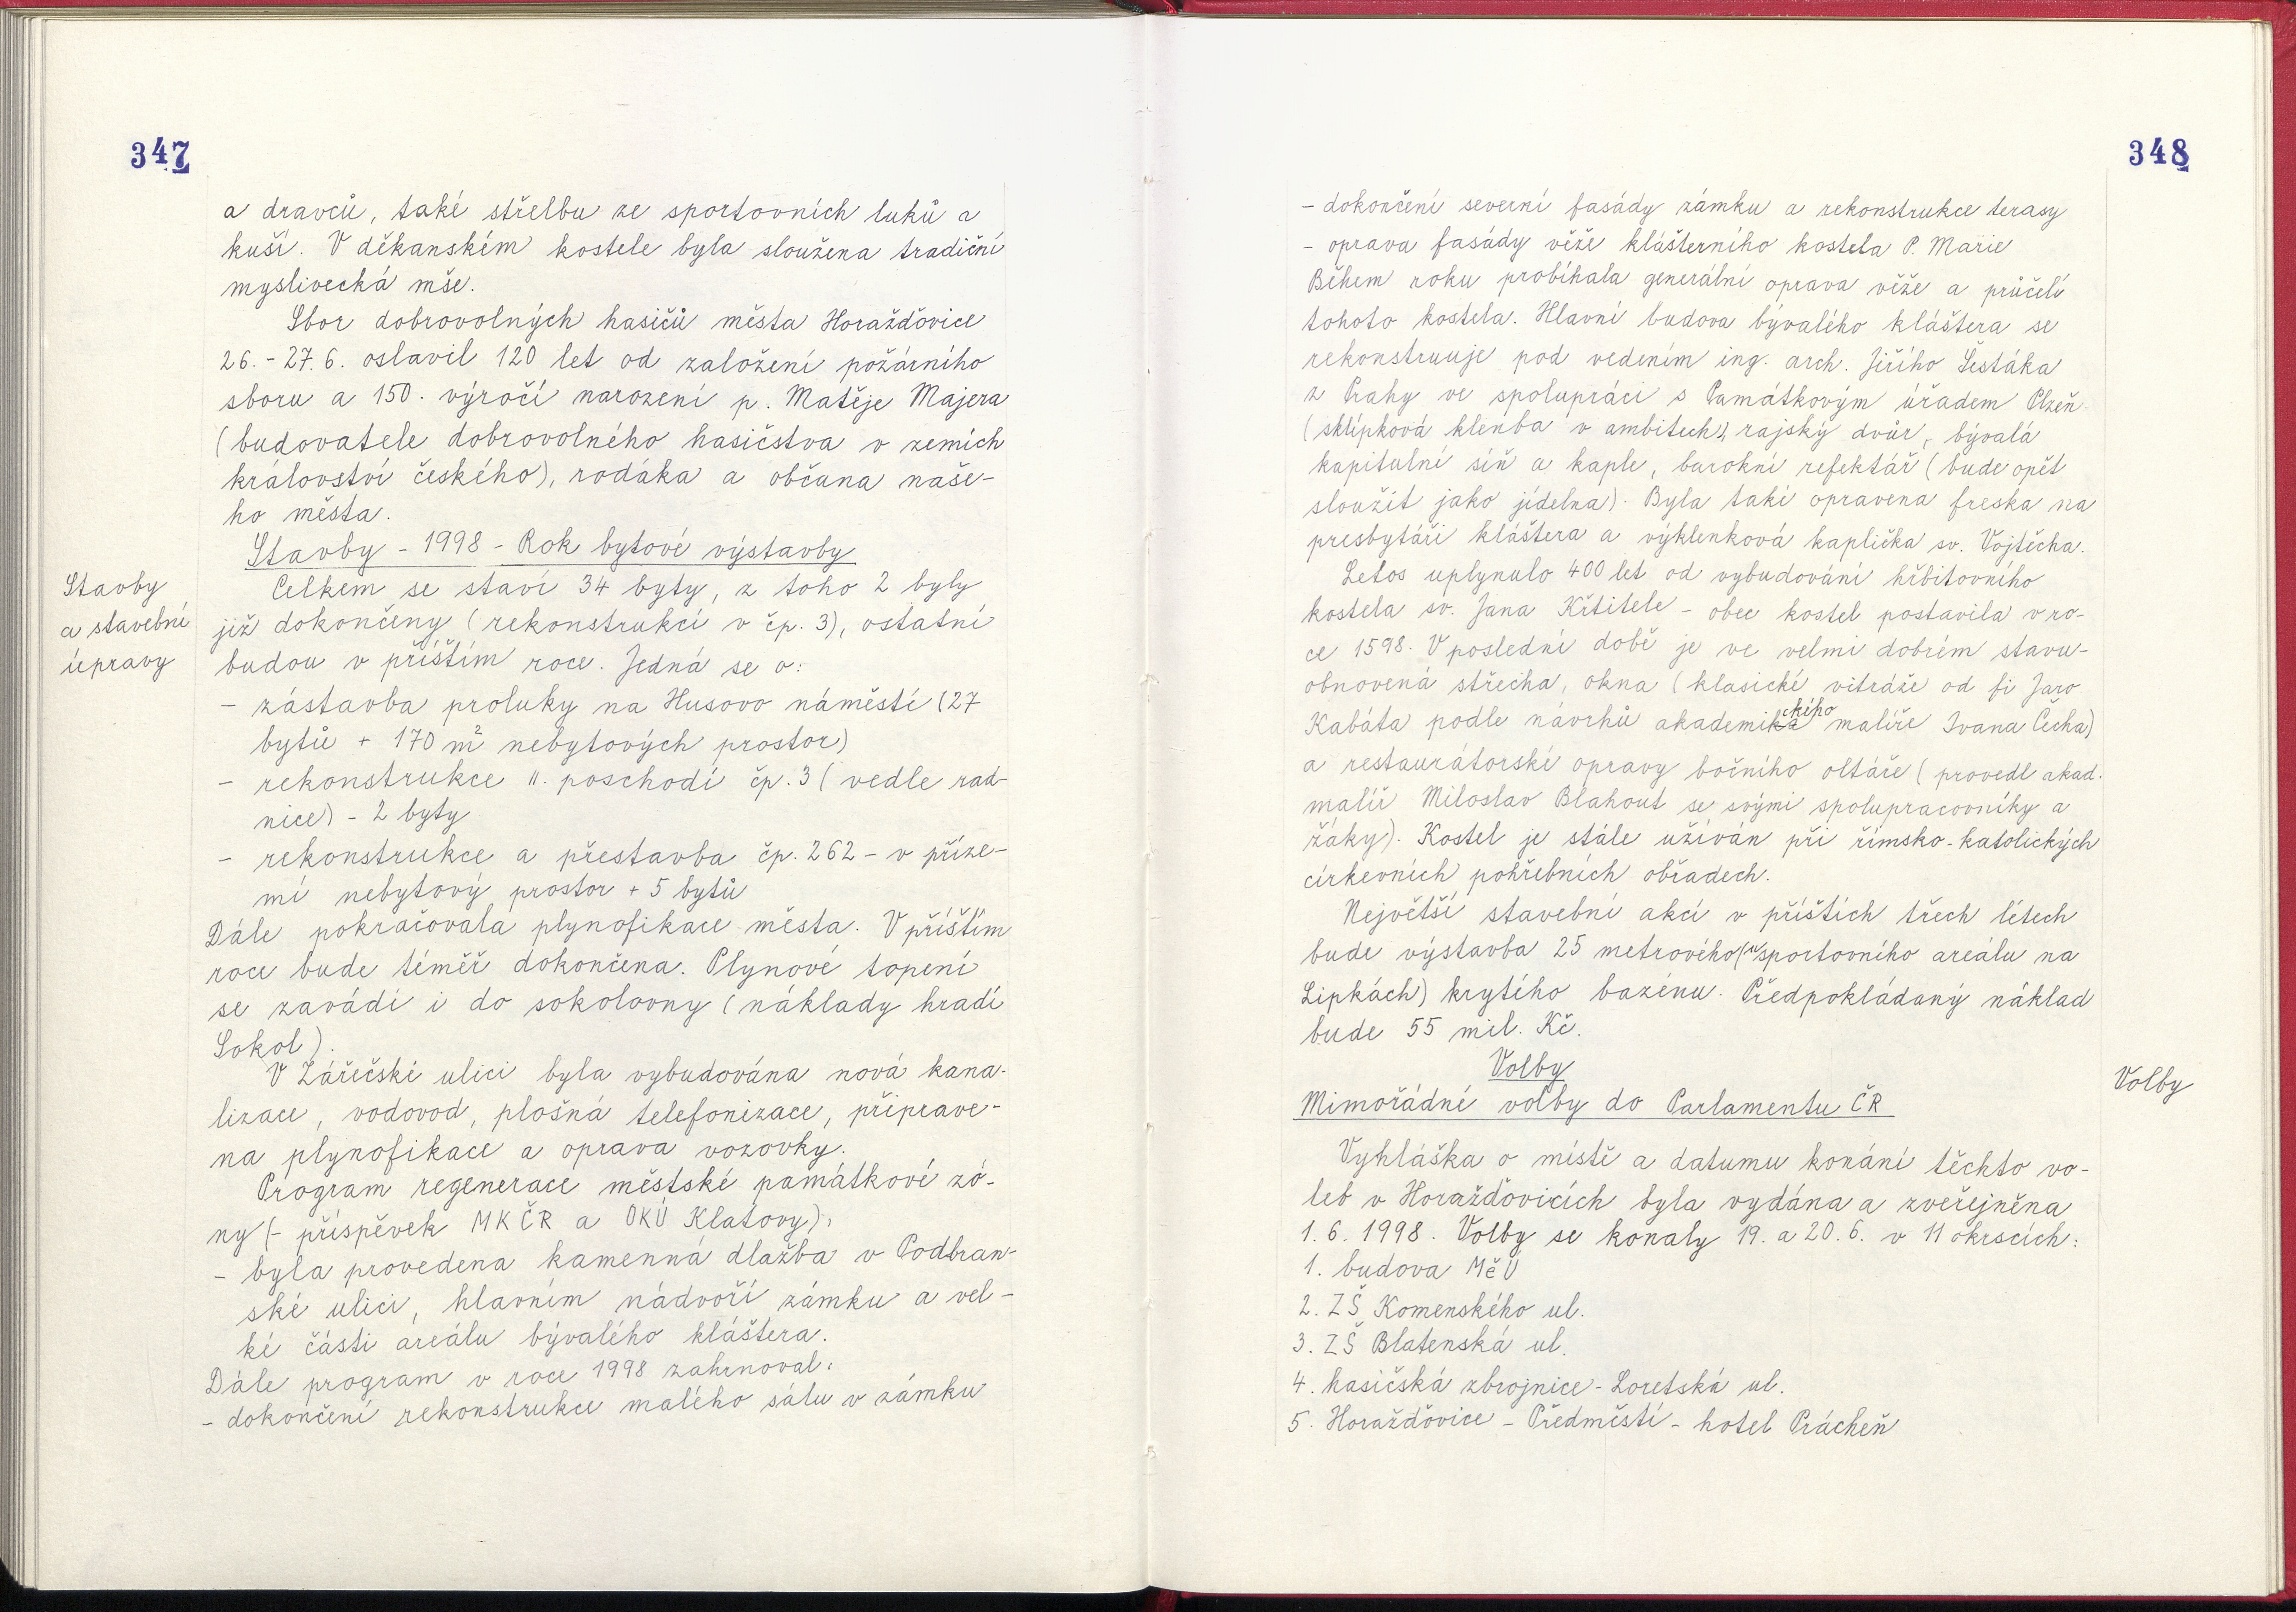 347
a dravců, také střelbu ze sportovních luků a
kuší. V děkanském kostele byla sloužena tradiční
myslivecká mše.
Sbor dobrovolných hasičů města Horažďovice
26.-27.6. oslavil 120 let od založení požárního
sboru a 150. výročí narození p. Matěje Majera
(budovatele dobrovolného hasičstva v zemích
království českého), rodáka a občana naše-
ho města.
Stavby - 1998 - Rok bytové výstavby
Stavby
a stavební
úpravy
Celkem se staví 34 byty, z toho 2 byly
již dokončeny (rekonstrukcí v čp. 3), ostatní
budou v příštím roce. Jedná se o:
- zástavba proluky na Husovo náměstí (27
bytů + 170 m² nebytových prostor)
- rekonstrukce II. poschodí čp. 3 (vedle rad-
nice) - 2 byty
- rekonstrukce a přestavba čp. 262 - v příze-
mí nebytový prostor + 5 bytů
Dále pokračovala plynofikace města. V příštím
roce bude téměř dokončena. Plynové topení
se zavádí i do sokolovny (náklady hradí
Sokol).
V Zářečské ulici byla vybudována nová kana-
lizace, vodovod, plošná telefonizace, připrave-
na plynofikace a oprava vozovky.
Program regenerace městské památkové zó-
ny (- příspěvek MKČR a OKÚ Klatovy):
- byla provedena kamenná dlažba v Podbran-
ské ulici, hlavním nádvoří zámku a vel-
ké části areálu bývalého kláštera.
Dále program v roce 1998 zahrnoval:
- dokončení rekonstrukce malého sálu v zámku
348
- dokončení severní fasády zámku a rekonstrukce terasy
- oprava fasády věže klášterního kostela P. Marie
Během roku probíhala generální oprava věže a průčelí
tohoto kostela. Hlavní budova bývalého kláštera se
rekonstruuje pod vedením ing. arch. Jiřího Šestáka
z Prahy ve spolupráci s Památkovým úřadem Plzeň
(sklípková klenba v ambitech), rajský dvůr, bývalá
kapitulní síň a kaple, barokní refektář (bude opět
sloužit jako jídelna). Byla také opravena freska na
presbytáři kláštera a výklenková kaplička sv. Vojtěcha.
Letos uplynulo 400 let od vybudování hřbitovního
kostela sv. Jana Křtitele - obec kostel postavila v ro-
ce 1598. V poslední době je ve velmi dobrém stavu-
obnovená střecha, okna (klasické vitráže od fi Jaro
Kabáta podle návrhů akademického malíře Ivana Čecha)
a restaurátorské opravy bočního oltáře (provedl akad.
malíř Miloslav Blahout se svými spolupracovníky a
žáky). Kostel je stále užíván při římsko-katolických
církevních pohřebních obřadech.
Největší stavební akcí v příštích třech létech
bude výstavba 25 metrového (u sportovního areálu na
Lipkách) krytého bazénu. Předpokládaný náklad
bude 55 mil. Kč.
Volby
Volby
Mimořádné volby do Parlamentu ČR
Vyhláška o místě a datumu konání těchto vo-
leb v Horažďovicích byla vydána a zveřejněna
1.6.1998. Volby se konaly 19. a 20.6. v 11 okrscích:
1. budova MěÚ
2. ZŠ Komenského ul.
3. ZŠ Blatenská ul.
4. hasičská zbrojnice - Loretská ul.
5. Horažďovice - Předměstí - hotel Prácheň